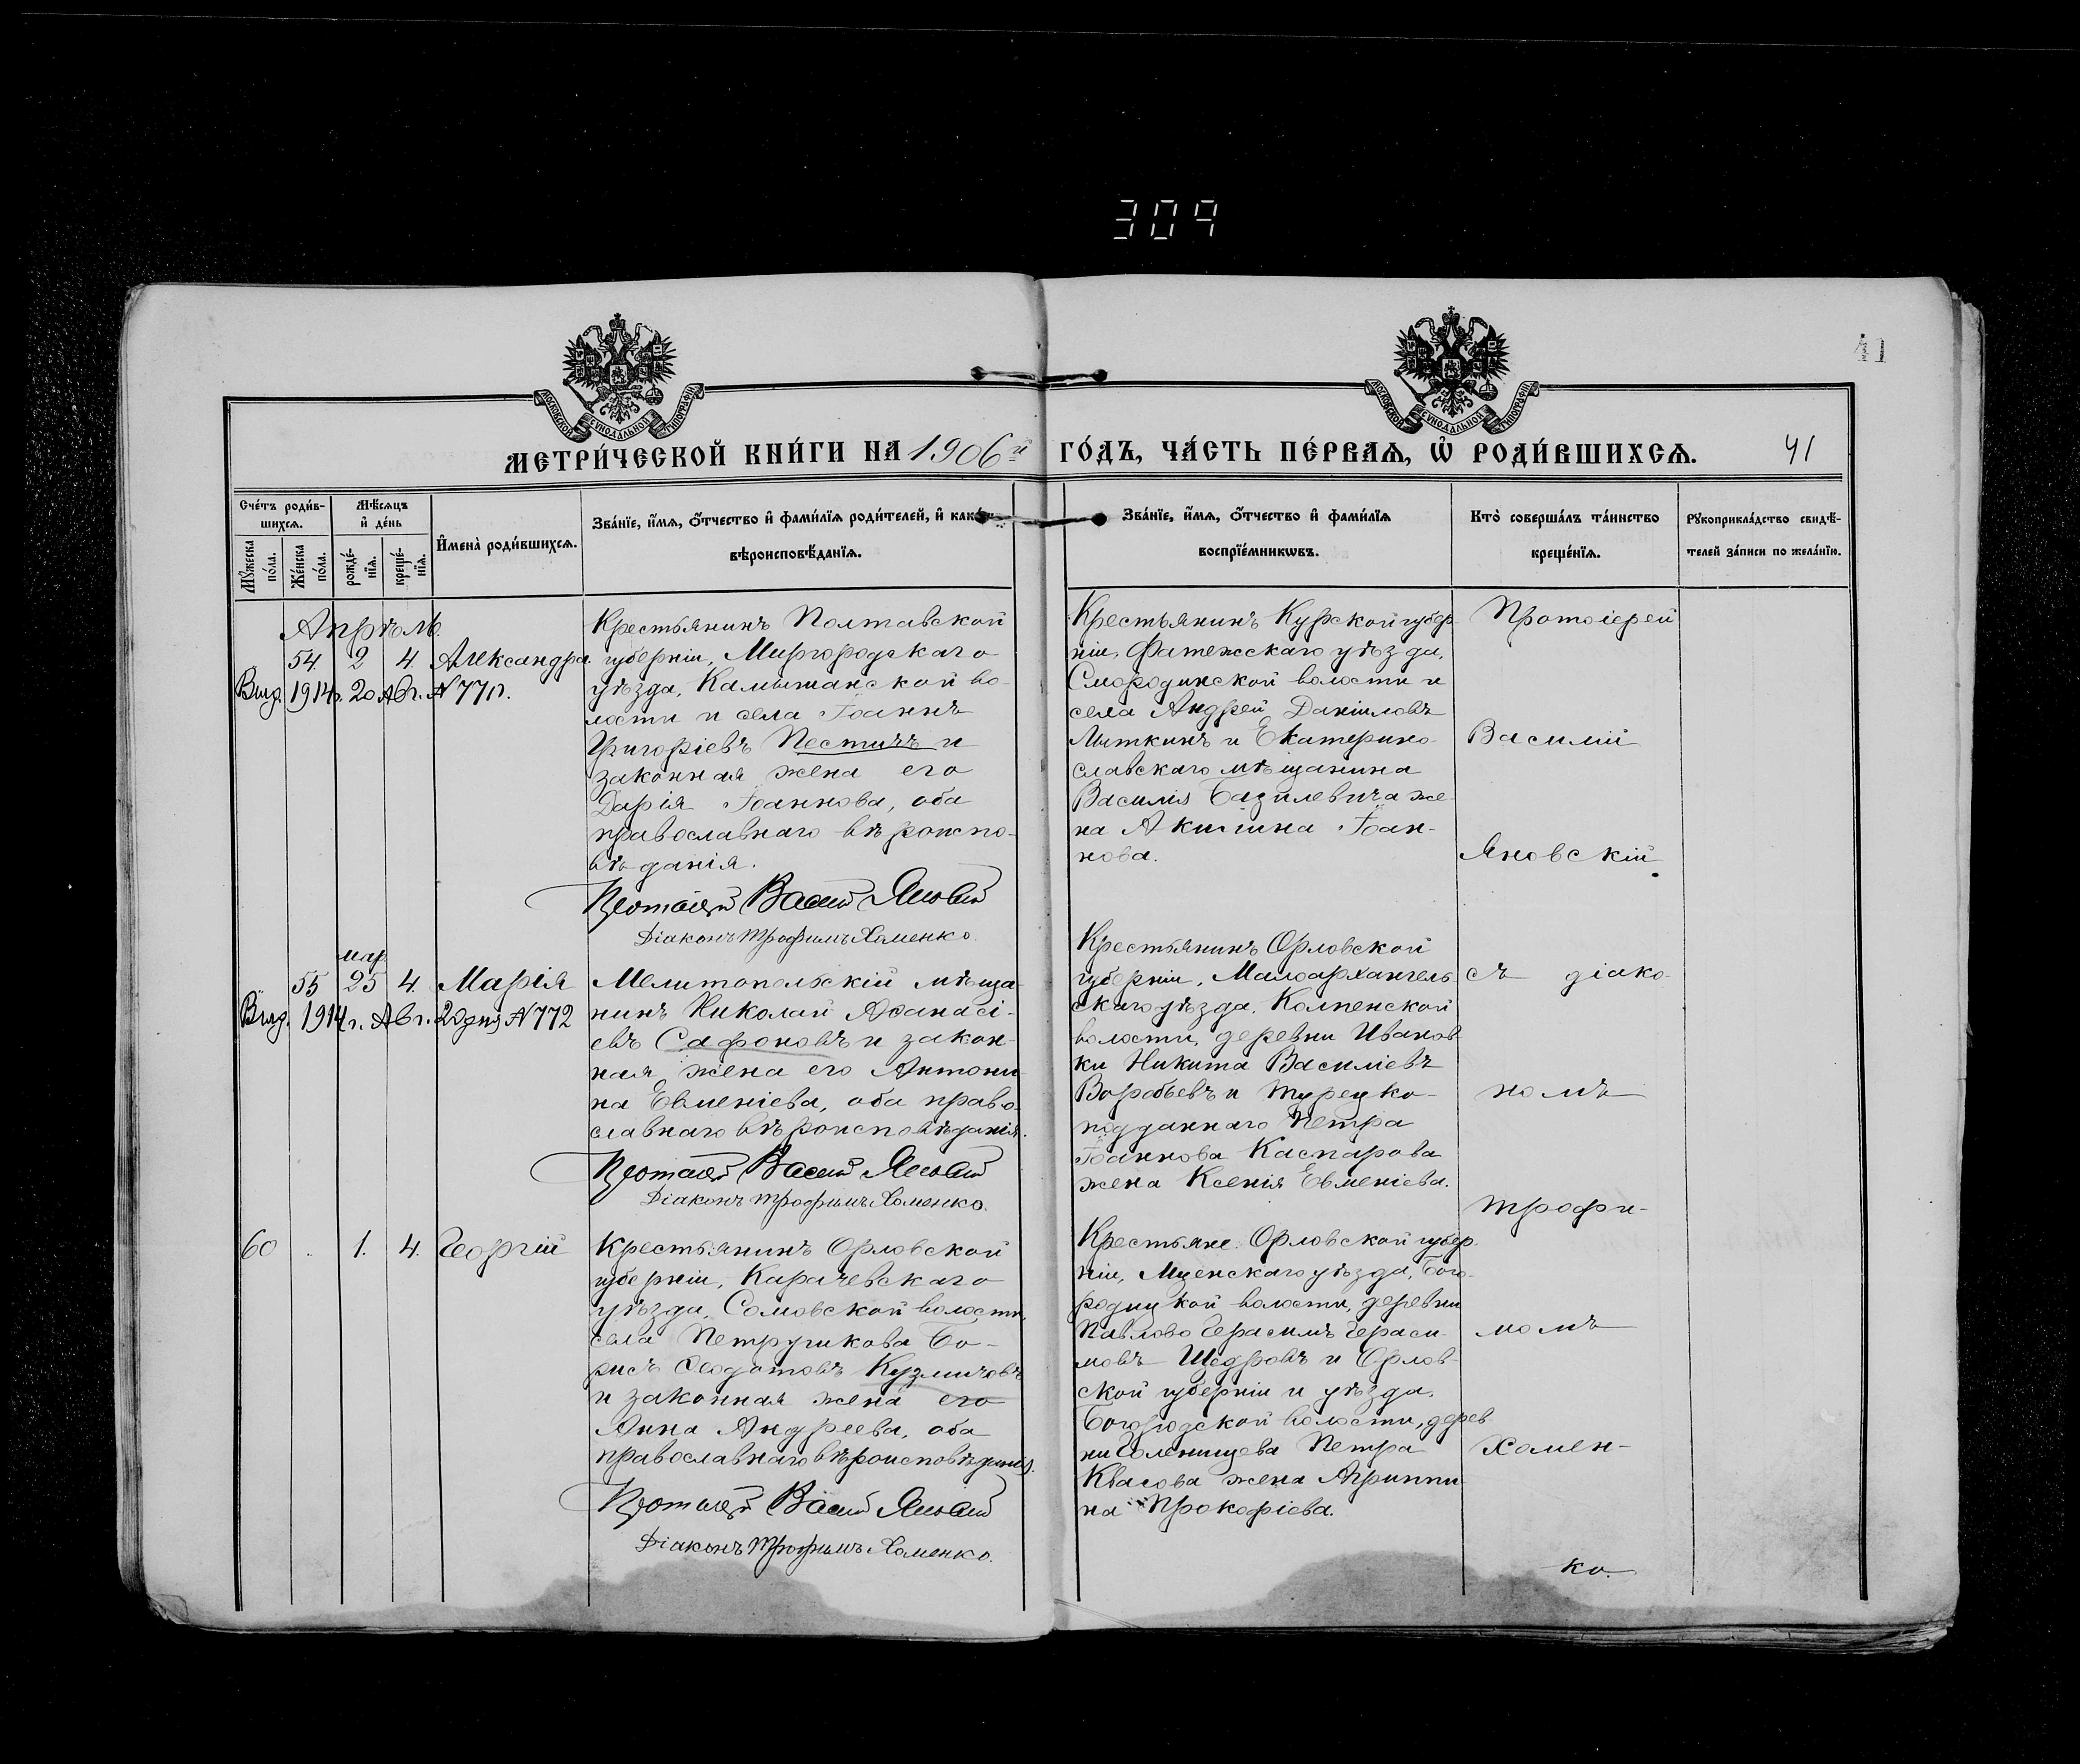 309
41
МОСКОВСКОЙ СУНОДАЛЬНОЙ ТИПОГРАФІИ
МОСКОВСКОЙ СУНОДАЛЬНОЙ ТИПОГРАФІИ
МЕТРИ́ЧЕСКОЙ КНИ́ГИ НА 1906й ГО́ДЪ, ЧА́СТЬ ПЕ́РВАѦ, Ѡ҆ РОДИ́ВШИХСѦ. 41
Сче́тъ роди́в-
шихсѧ.
Мѣ́сѧцъ
и҆ де́нь
Мꙋ́жеска по́ла.
Же́нска по́ла.
рожде́-нїѧ.
креще́-нїѧ.
И҆мена̀ роди́вшихсѧ.
Зва́нїе, и҆́мѧ, ѻ҆́тчество и҆ фами́лїѧ роди́телей, и҆ како́гѡ
вѣроисповѣ́данїѧ.
Зва́нїе, и҆́мѧ, ѻ҆́тчество и҆ фами́лїѧ
воспрїе́мникѡвъ.
Кто̀ соверша́лъ та́инство
креще́нїѧ.
Рꙋкоприкла́дство свидѣ́-
телей за́писи по жела́нїю.
Апрѣль.
54. 2 4 Александра.
Выд. 1914г. 20 Авг. №
Крестьянинъ Полтавской
губерніи, Миргородскаго
уѣзда, Камышанской во-
лости и села Іоаннъ
Григоріевъ Пестичъ и
законная жена его
Дарія Іоаннова, оба
православнаго вѣроиспо-
вѣданія.
Протоіерей Василій Яновскій
Діаконъ Трофимъ Хоменко.
Крестьянинъ Курской губер-
ніи, Фатежскаго уѣзда,
Смородинской волости и
села Андрей Даніиловъ
Лыткинъ и Екатерино-
славскаго мѣщанина
Василія Базилевича же-
на Акилина Іоан-
нова.
Протоіерей
Василій
Яновскій
мар.
55 25 4. Марія
Выд. 1914г. Авг. 20 дня № 772
Мелитопольскій мѣща-
нинъ Николай Аѳанасі-
евъ Сафоновъ и закон-
ная жена его Антони-
на Евменіева, оба право-
славнаго вѣроисповѣданія.
Протоіерей Василій Яновскій
Діаконъ Трофимъ Хоменко.
Крестьянинъ Орловской
губерніи, Малоархангель-
скаго уѣзда, Колпенской
волости, деревни Иванов-
ки Никита Василіевъ
Воробьевъ и турецко-
подданнаго Петра
Іоаннова Каспарова
жена Ксенія Евменіева.
съ діако-
номъ
Трофи-
60 1. 4. Георгій
Крестьянинъ Орловской
губерніи, Карачевскаго
уѣзда, Сомовской волости,
села Петрушкова Бо-
рисъ Ѳеодотовъ Кузмичовъ
и законная жена его
Анна Андреева, оба
православнаго вѣроисповѣданія.
Протоіерей Василій Яновскій
Діаконъ Трофимъ Хоменко.
Крестьяне: Орловской губер-
ніи, Мценскаго уѣзда, Бого-
родицкой волости, деревни
Павлово Герасимъ Гераси-
мовъ Щедровъ и Орлов-
ской губерніи и уѣзда,
Богородской волости, дерев-
ни Голенищева Петра
Квасова жена Агриппи-
на Прокофіева.
момъ
Хомен-
ко.